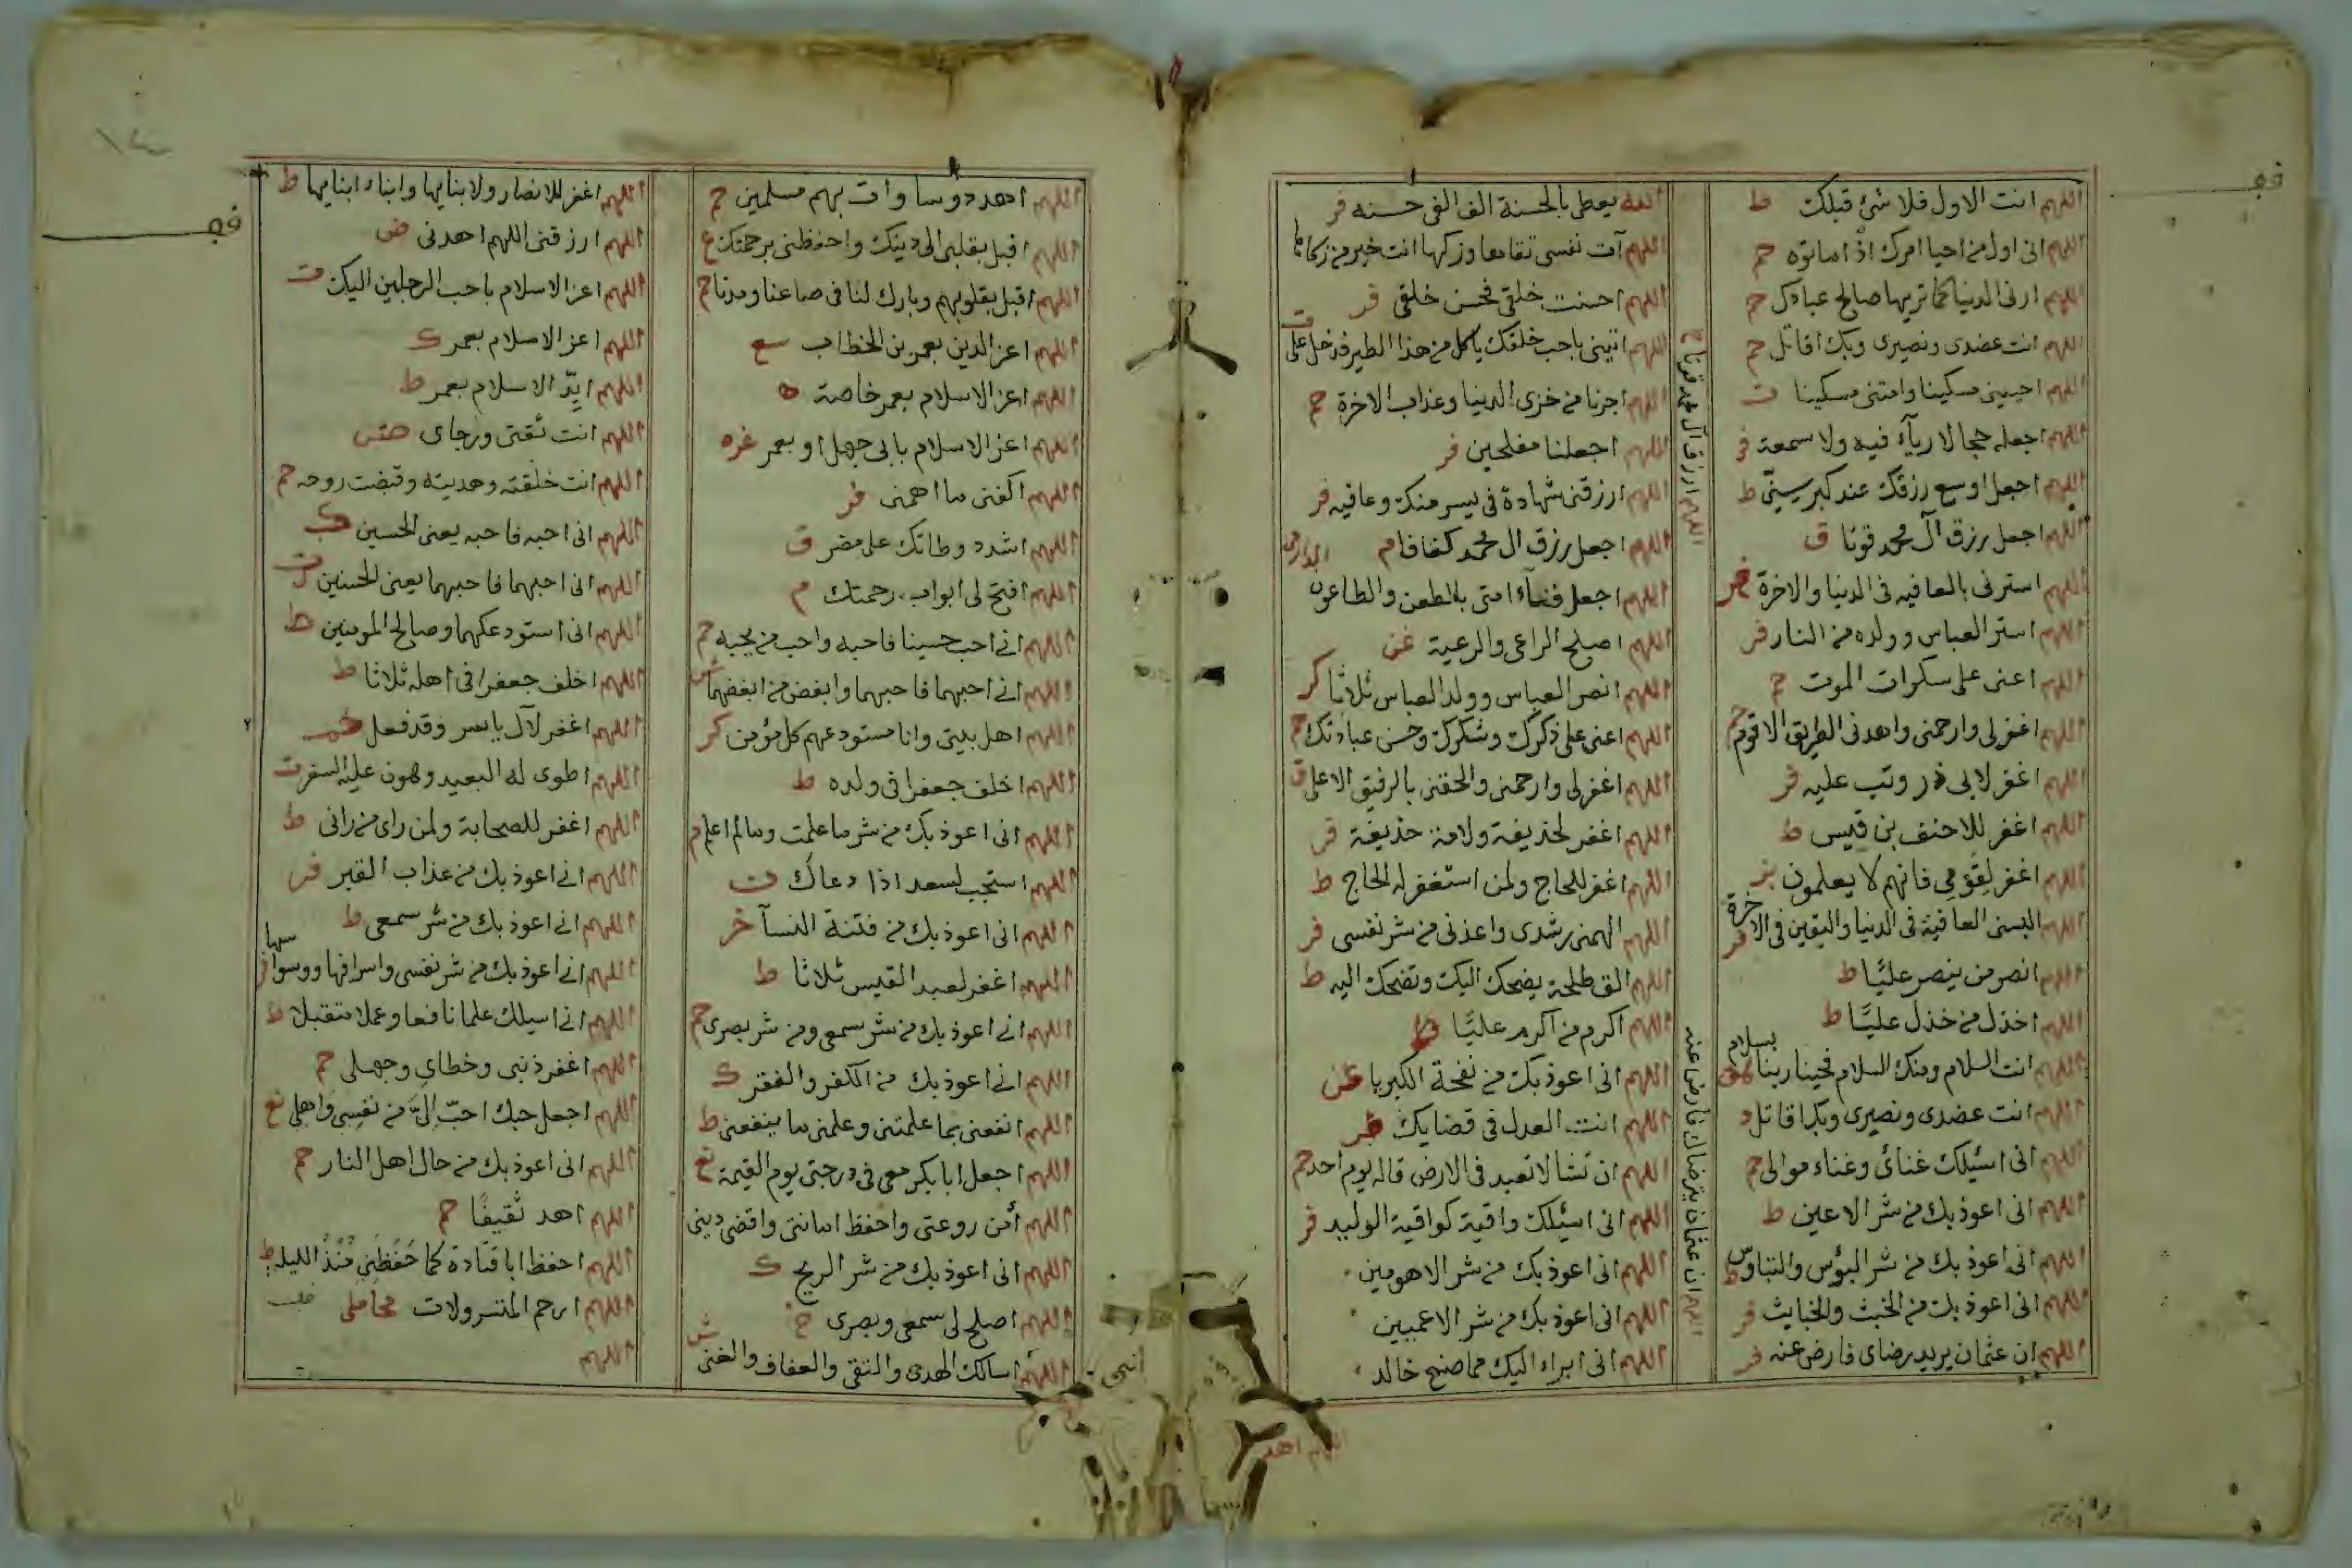 اللهم انت الاول فلا شئ قبلك ط
اللهم انى اول من احيا امرك اذ اماتوه حم
اللهم ارنى الدنيا كما تريها صالح عبادك حم
اللهم انت عضدى ونصيرى وبك اقاتل حم
اللهم احينى مسكينا وامتنى مسكينا ت
اللهم اجعله حجا لا رياء فيه ولا سمعة فر
اللهم اجعل اوسع رزقك عند كبر سنى ط
اللهم اجعل رزق آل محمد قوتا ق
اللهم استرنى بالعافيه فى الدنيا والاخرة
اللهم استر العباس وولده من النار فر
اللهم اعنى على سكرات الموت حم
اللهم اغفرلى وارحمنى واهدنى الطريق الاقوم حم
اللهم اغفر لابى ذر وتب عليه فر
اللهم اغفر للاحنف بن قيس ط
اللهم اغفر لقومى فانهم لا يعلمون
اللهم البسنى العافية فى الدنيا واليقين فى الاخرة فر
اللهم انصر من ينصر عليا ط
اللهم اخذل من خذل عليا ط
اللهم انت السلام ومنك السلام فحينا ربنا بسلام
اللهم انت عضدى ونصيرى وبك اقاتل د
اللهم انى اسئلك غنائ وغناء موالى حم
اللهم انى اعوذ بك من شر الاعين ط
اللهم انى اعوذ بك من شر البؤس والتباوس ط
اللهم انى اعوذ بك من الخبث والخبايث فر
اللهم ان عثمان يريد رضاى فارض عنه فر
اللهم ارزق آل محمد قوتا
اللهم ان عثمان يترضاك فارض عنه
الله يعطى بالحسنة الف الفى حسنه فر
اللهم آت نفسى تقاها وزكها انت خير من زكاها
اللهم احسنت خلقى فحسن خلقى فر
اللهم ائتينى باحب خلقك ياكل من هذا الطير فدخل على ت
اللهم اجرنا من خزى الدنيا وعذاب الاخرة حم
اللهم اجعلنا مفلحين فر
اللهم ارزقنى شهادة فى يسر منك وعافيه فر
اللهم اجعل رزق ال محمد كفافا م
اللهم اجعل فناء امتى بالطعن والطاعون
اللهم اصلح الراعى والرعية
اللهم انصر العباس وولد العباس ثلاثا كر
اللهم اعنى على ذكرك وشكرك وحسن عبادتك حم
اللهم اغفرلى وارحمنى والحقنى بالرفيق الاعلى ق
اللهم اغفر لحذيفة ولامة حذيفة فر
اللهم اغفر للحاج ولمن استغفر له الحاج ط
اللهم الهمنى رشدى واعذنى من شر نفسى فر
اللهم الق طلحة يضحك اليك وتضحك اليه ط
اللهم اكرم من اكرم عليا ط
اللهم انى اعوذ بك من نفحة الكبريا
اللهم انت العدل فى قضايك
اللهم ان تشا لا تعبد فى الارض قاله يوم احد حم
اللهم انى اسئلك واقية كواقية الوليد فر
اللهم انى اعوذ بك من شر الاهومين
اللهم انى اعوذ بك من شر الاعميين
اللهم انى ابراء اليك مما صنع خالد
اللهم اهد
اللهم اهد دوسا وات بهم مسلمين حم
اللهم اقبل بقلبى الى دينك واحفظنى برحمتك ع
اللهم اقبل بقلوبهم وبارك لنا فى صاعنا ومدنا حم
اللهم اعز الدين بعمر بن الخطاب سع
اللهم اعز الاسلام بعمر خاصة ه
اللهم اعز الاسلام بابى جهل او بعمر غره
اللهم اكفنى ما اهمنى فر
اللهم اشدد وطاتك على مضر ق
اللهم افتح لى ابواب رحمتك م
اللهم انى احب حسينا فاحبه واحب من يحبه حم
اللهم انى احبهما فاحبهما وابغض من ابغضهما ش
اللهم اهل بيتى وانا مستودعهم كل مؤمن كر
اللهم اخلف جعفرا فى ولده ط
اللهم انى اعوذ بك من شر ما علمت وما لم اعلم م
اللهم استجب لسعد اذا دعاك ت
اللهم انى اعوذ بك من فتنة النسآ خر
اللهم اغفر لعبد القيس ثلاثا ط
اللهم انى اعوذ بك من شر سمعى ومن شر بصرى حم
اللهم انى اعوذ بك من الكفر والفقر ك
اللهم انفعنى بما علمتنى وعلمنى ما ينفعنى ط
اللهم اجعل ابابكر معى فى درجتى يوم القيمة نع
اللهم آمن روعتى واحفظ امانتى واقض دينى
اللهم انى اعوذ بك من شر الريح ك
اللهم اصلح لى سمعى وبصرى خ
اللهم اسالك الهدى والتقى والعفاف والغنى ش
اللهم اغفر للانصار ولابنايها وابناء ابنايها ط
اللهم ارزقنى اللهم اهدنى ض
اللهم اعز الاسلام باحب الرجلين اليك ت
اللهم اعز الاسلام بعمر ك
اللهم ايد الاسلام بعمر ط
اللهم انت ثقتى ورجاى
اللهم انت خلقته وهديته وقبضت روحه حم
اللهم انى احبه فاحبه يعنى الحسين ك
اللهم انى احبهما فاحبهما يعنى الحسنين ت
اللهم انى استودعكهما وصالح المومنين ط
اللهم اخلف جعفرا فى اهله ثلاثا ط
اللهم اغفر لآل ياسر وقد فعل حم
اللهم اطوى له البعيد وهون عليه السفر ت
اللهم اغفر للصحابة ولمن راى من رانى ط
اللهم انى اعوذ بك من عذاب القبر فر
اللهم انى اعوذ بك من شر سمعى ط
اللهم انى اعوذ بك من شر نفسى واسرافها ووسواسها
اللهم انى اسيلك علما نافعا وعملا متقبلا ط
اللهم اغفر ذنبى وخطاى وجهلى حم
اللهم اجعل حبك احب الى من نفسى واهلى نع
اللهم انى اعوذ بك من حال اهل النار حم
اللهم اهد ثقيفا حم
اللهم احفظ ابا قتادة كما حفظنى منذ الليله ط
اللهم ارحم المتسرولات محاملى
اللهم